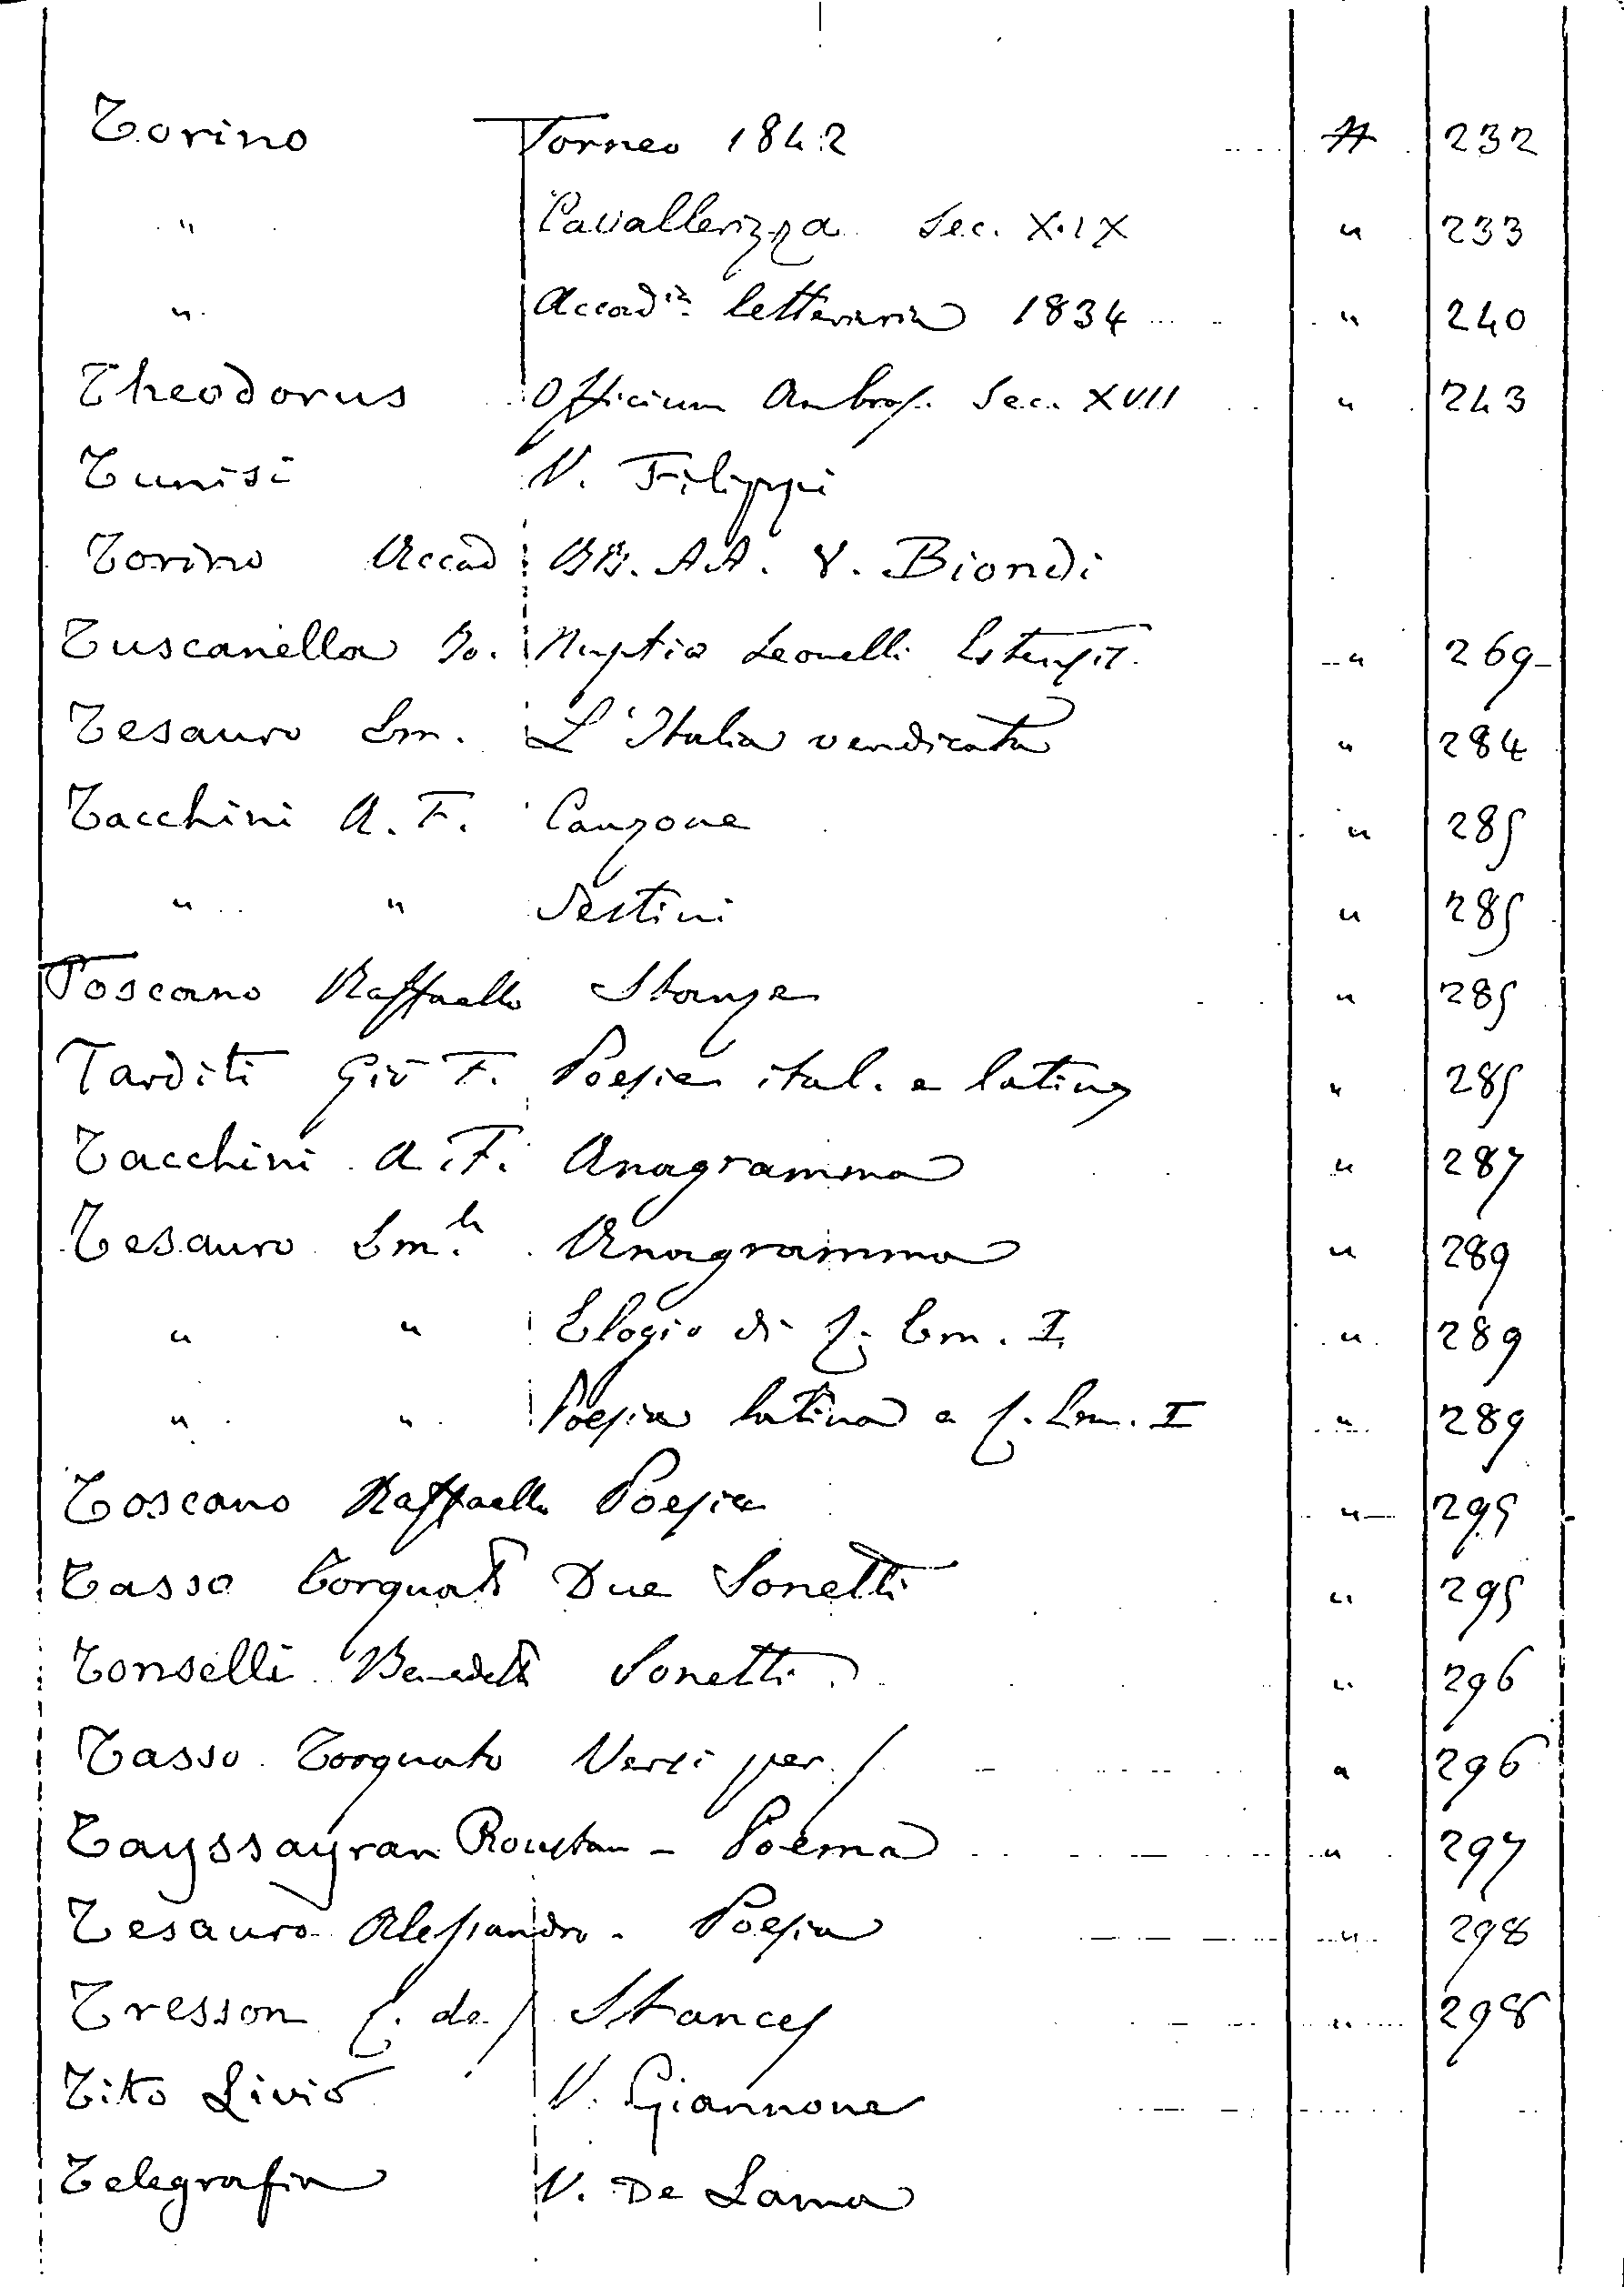 Torino Torneo 1842 " 232
" Cavallerizza Sec. XIX " 233
" Accad.ia letteraria 1834 " 240
Theodorus Officium Ambros. Sec. XVII " 243
Tunisi V. Filippi
Torino Accad BB. AA. V. Biondi
Tuscanella Io. Nuptia Leonelli " 269
Tesauro Em. L'Italia vendicata " 284
Tacchini A. F. Canzone " 285
" " Sestini " 285
Toscano Raffaello Stanze " 285
Tarditi Gio F. Poesie ital. e latine " 285
Tacchini A. F. Anagramma " 287
Tesauro Em.le Anagramma " 289
" " Elogio di C. Em. I. " 289
" " Poesia latina a C. Em. I " 289
Toscano Raffaello Poesia " 295
Tasso Torquato Due Sonetti " 295
Tonselli Benedetto Sonetti " 296
Tasso Torquato Versi per / " 296
Tayssayran Roustan - Poema " 297
Tesauro Alessandro - Poesia " 298
Tresson C. de / Stances " 298
Tito Livio V. Giannone
Telegrafia V. De Lama